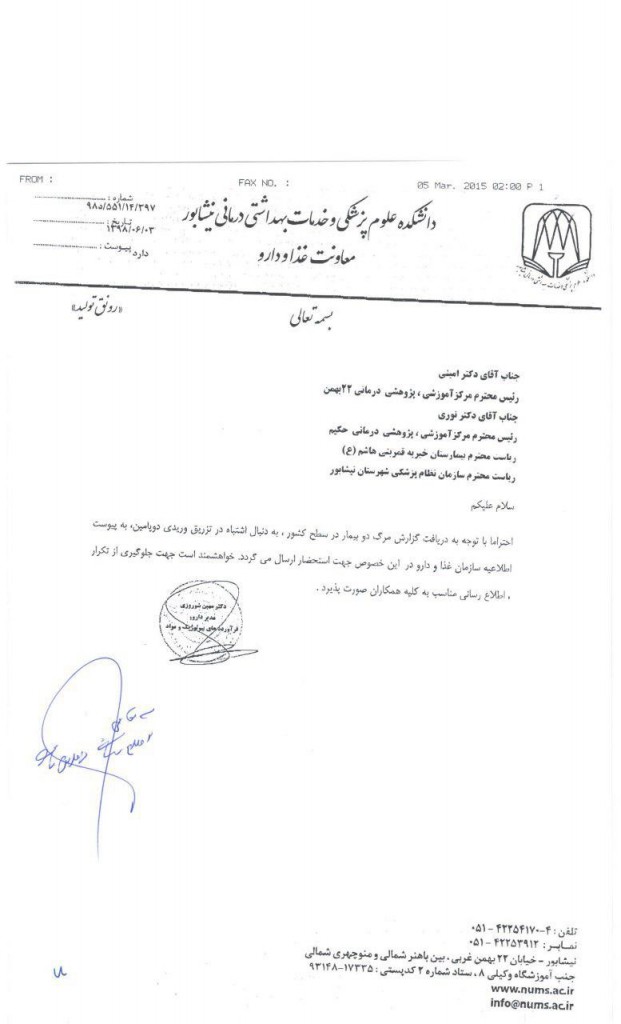 FROM :
FAX NO. :
05 Mar. 2015 02:00 P 1
دانشکده علوم پزشکی و خدمات بهداشتی درمانی نیشابور
معاونت غذا و دارو
شماره :
۹۸۵/۵۵۱/۱۴/۳۹۷
تاریخ :
۱۳۹۸/۰۶/۰۳
پیوست :
دارد
بسمه تعالی
«رونق تولید»
جناب آقای دکتر امینی
رئیس محترم مرکز آموزشی ، پژوهشی درمانی ۲۲بهمن
جناب آقای دکتر نوری
رئیس محترم مرکز آموزشی ، پژوهشی درمانی حکیم
ریاست محترم بیمارستان خیریه قمربنی هاشم (ع)
ریاست محترم سازمان نظام پزشکی شهرستان نیشابور
سلام علیکم
احتراما با توجه به دریافت گزارش مرگ دو بیمار در سطح کشور ، به دنبال اشتباه در تزریق وریدی دوپامین، به پیوست
اطلاعیه سازمان غذا و دارو در این خصوص جهت استحضار ارسال می گردد. خواهشمند است جهت جلوگیری از تکرار
، اطلاع رسانی مناسب به کلیه همکاران صورت پذیرد .
دکتر مبین نوروزی
مدیر دارو،
فرآورده های بیولوژیک و مواد
تلفن : ۴-۴۲۲۵۴۱۷۰ - ۰۵۱
نمابر : ۴۲۲۵۳۹۱۲ - ۰۵۱
نیشابور - خیابان ۲۲ بهمن غربی ، بین باهنر شمالی و منوچهری شمالی
جنب آموزشگاه وکیلی ۸ ، ستاد شماره ۲ کدپستی : ۱۷۳۳۵-۹۳۱۴۸
www.nums.ac.ir
info@nums.ac.ir